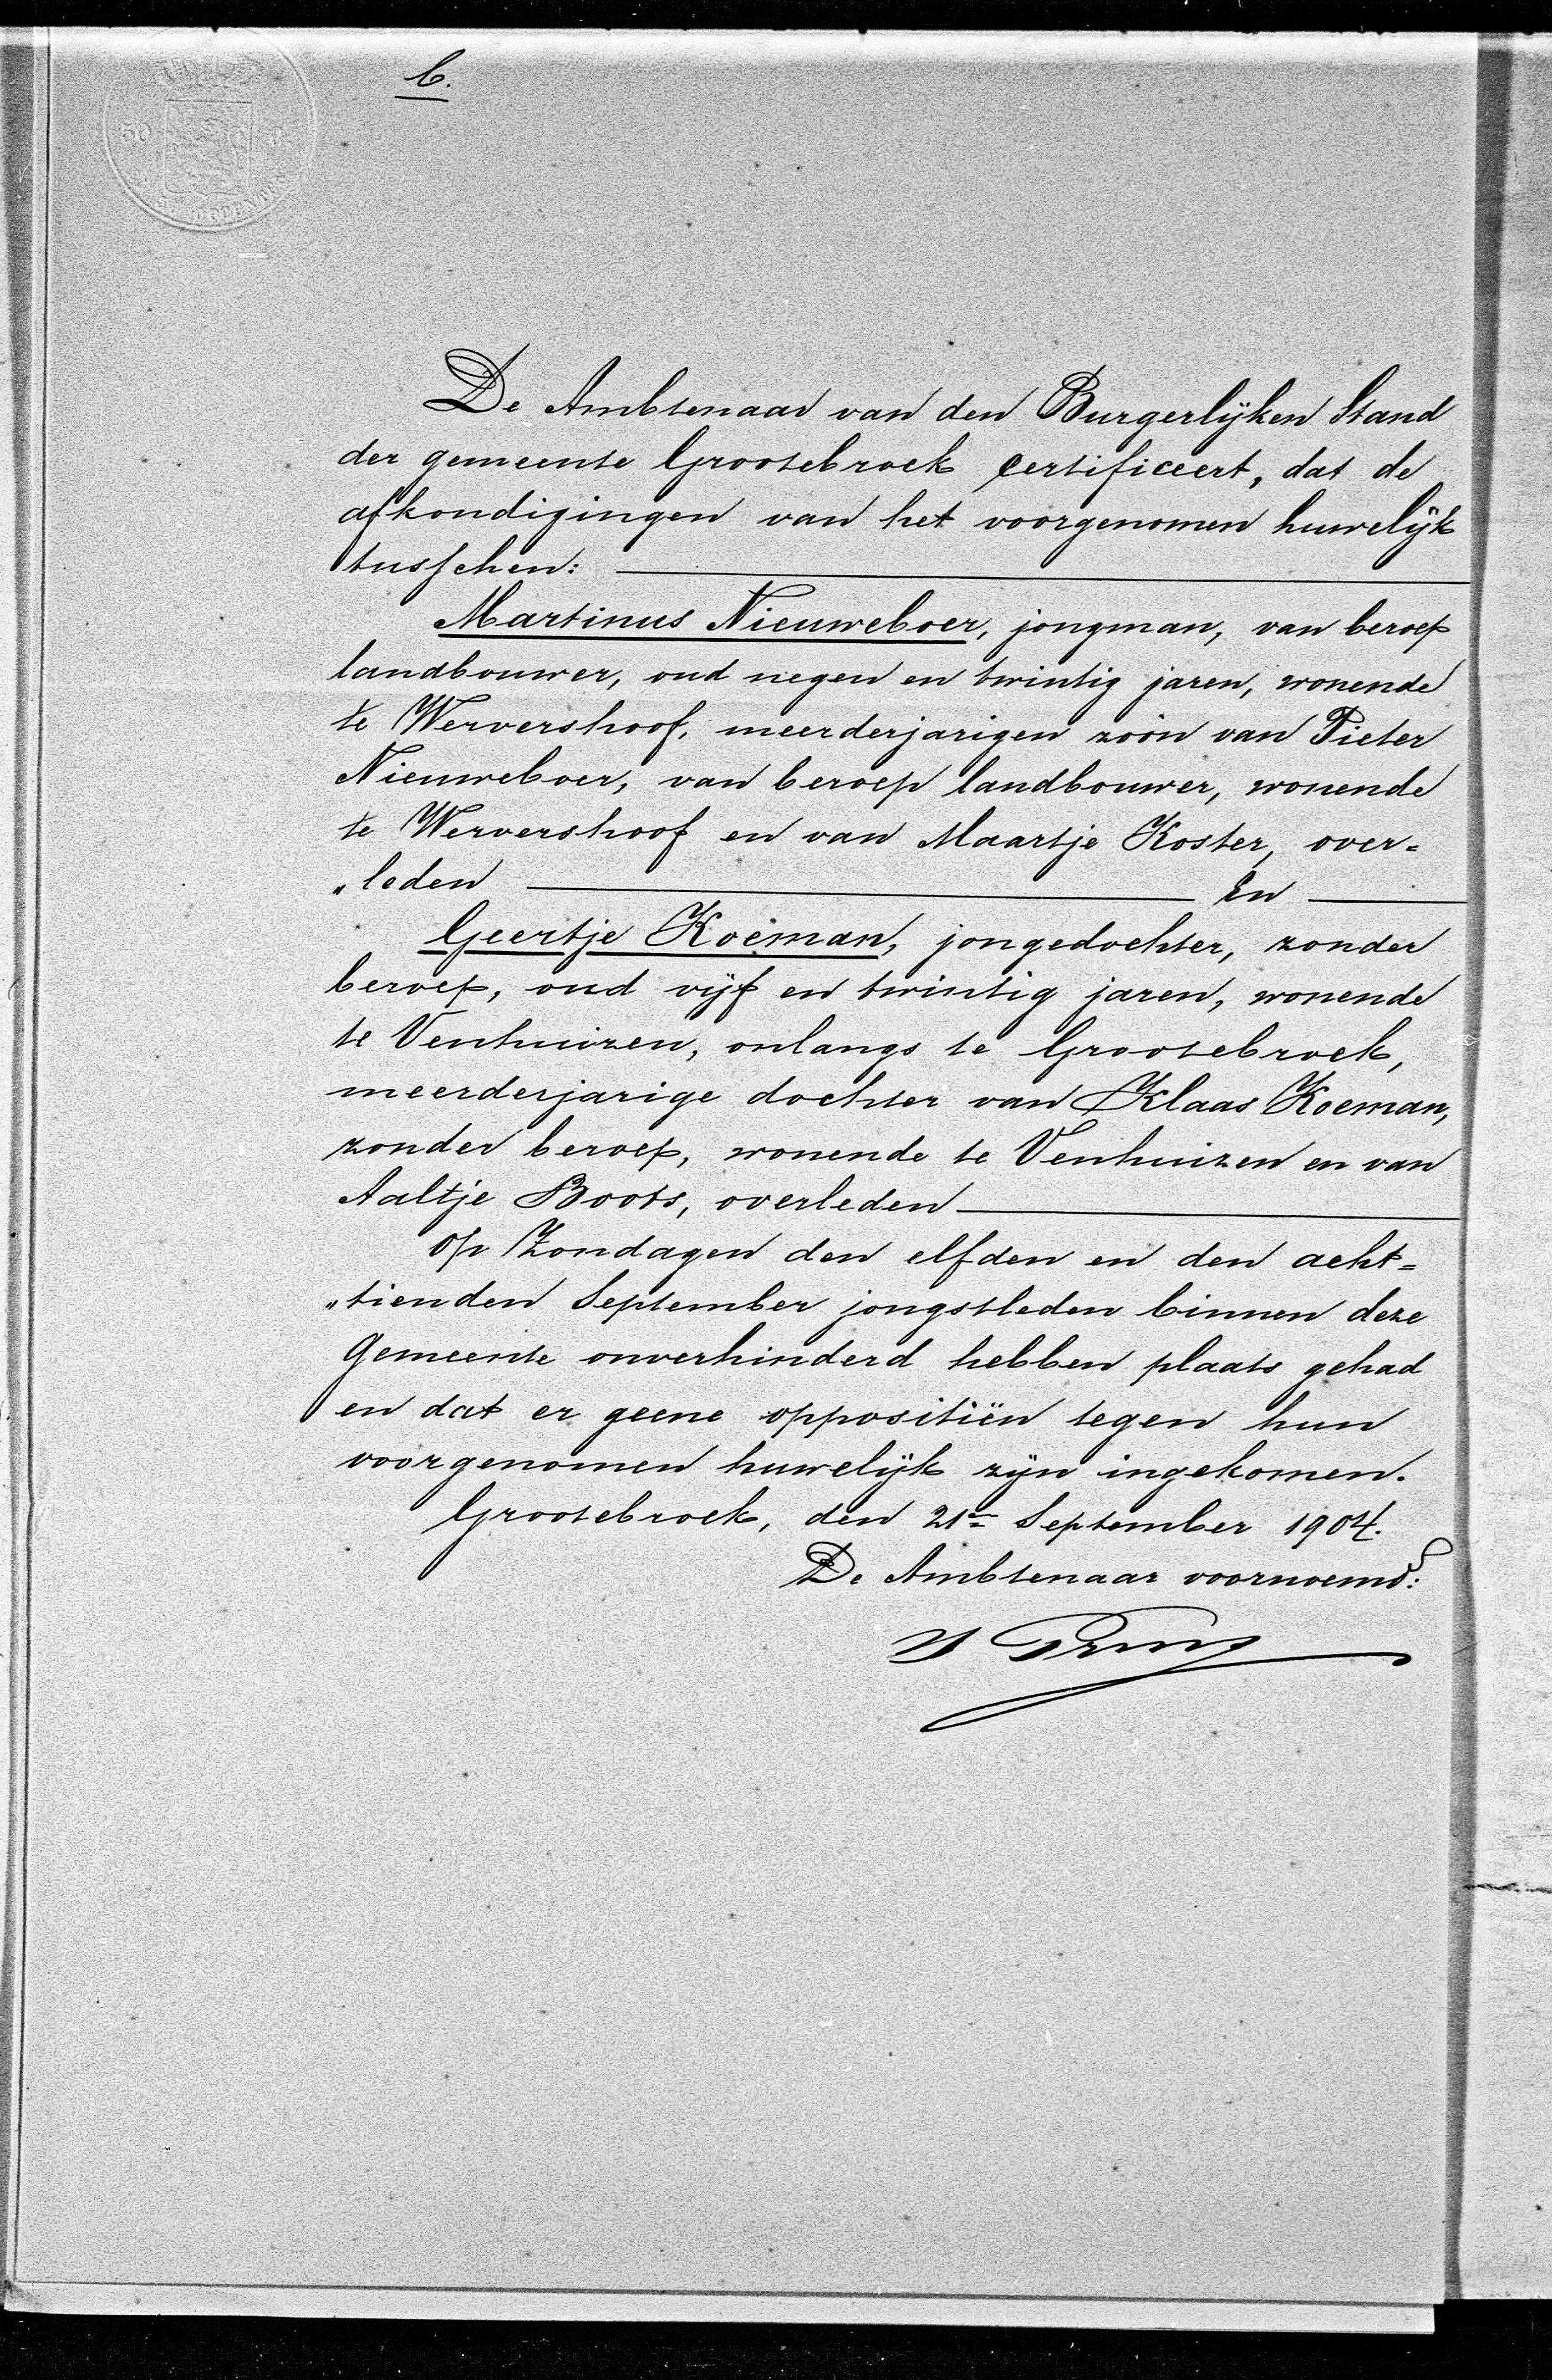 C.
De Ambtenaar van den Burgerlijken Stand
der gemeente Grootebroek certificeert, dat de
afkondigingen van het voorgenomen huwelijk
tusschen:
Martinus Nieuweboer, jongman, van beroep
landbouwer, oud negen en twintig jaren, wonende
te Wervershoof, meerderjarigen zoon van Pieter
Nieuweboer, van beroep landbouwer, wonende
te Wervershoof en van Maartje Koster, over=
„leden En
Geertje Koeman, jongedochter, zonder
beroep, oud vijf en twintig jaren, wonende
te Venhuizen, onlangs te Grootebroek,
meerderjarige dochter van Klaas Koeman,
zonder beroep, wonende te Venhuizen en van
Aaltje Boots, overleden
op Zondagen den elfden en den acht=
„tienden September jongstleden binnen deze
Gemeente onverhinderd hebben plaats gehad
en dat er geene oppositiën tegen hun
voorgenomen huwelijk zijn ingekomen.
Grootebroek, den 21en September 1904.
De Ambtenaar voornoemd:
50